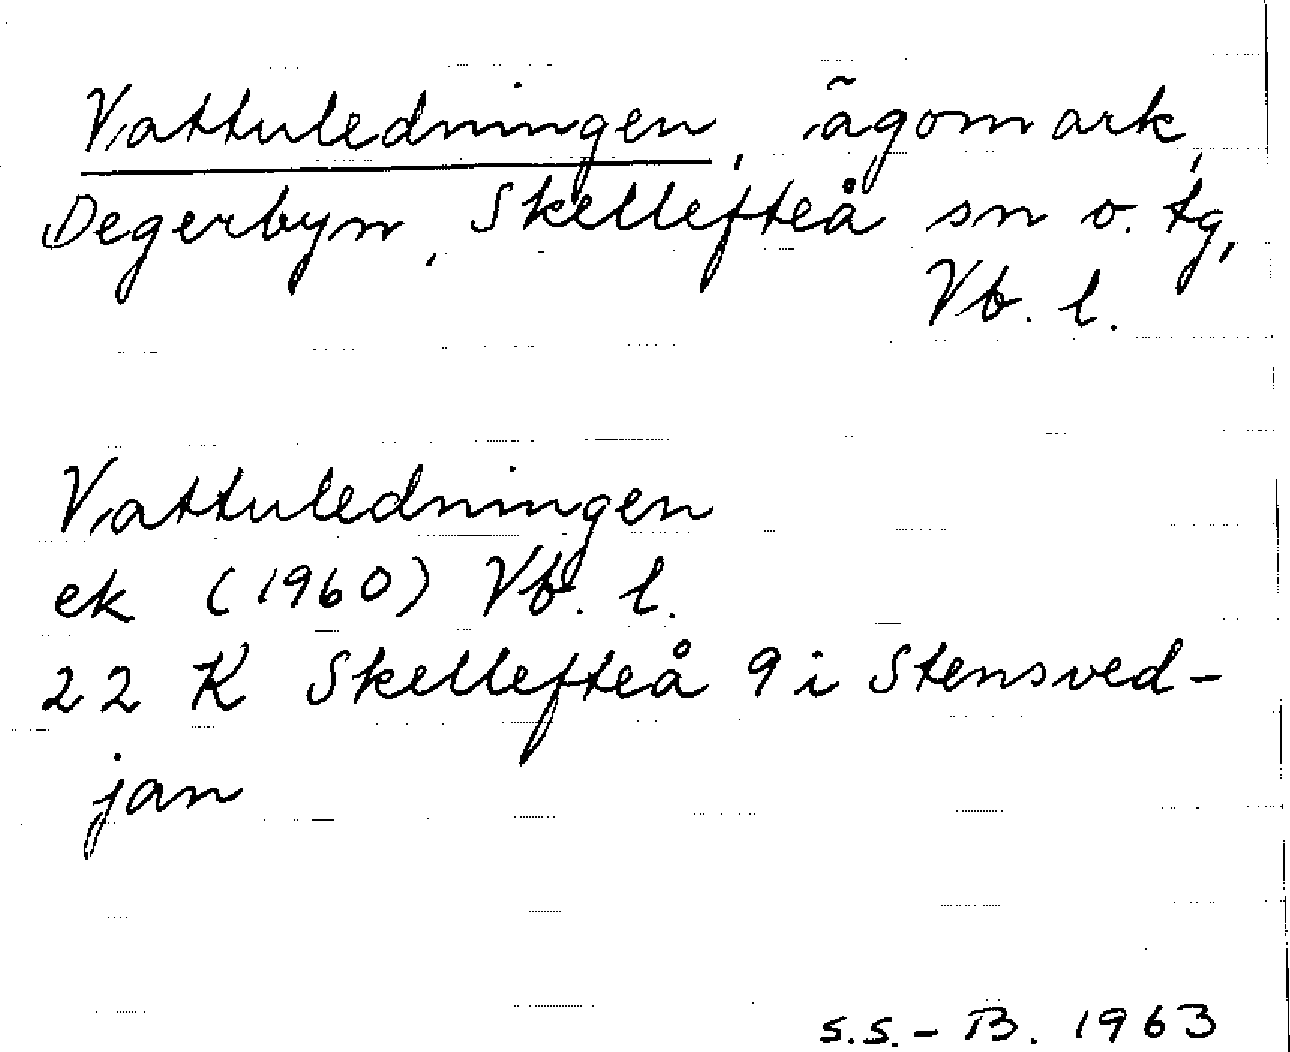 Vattuledningen, ägomark,
Degerbyn, Skellefteå sn o. tg,
Vb. l.
Vattuledningen
ek (1960) Vb. l.
22 K Skellefteå 9 i Stensved-
jan
S.S.-B. 1963